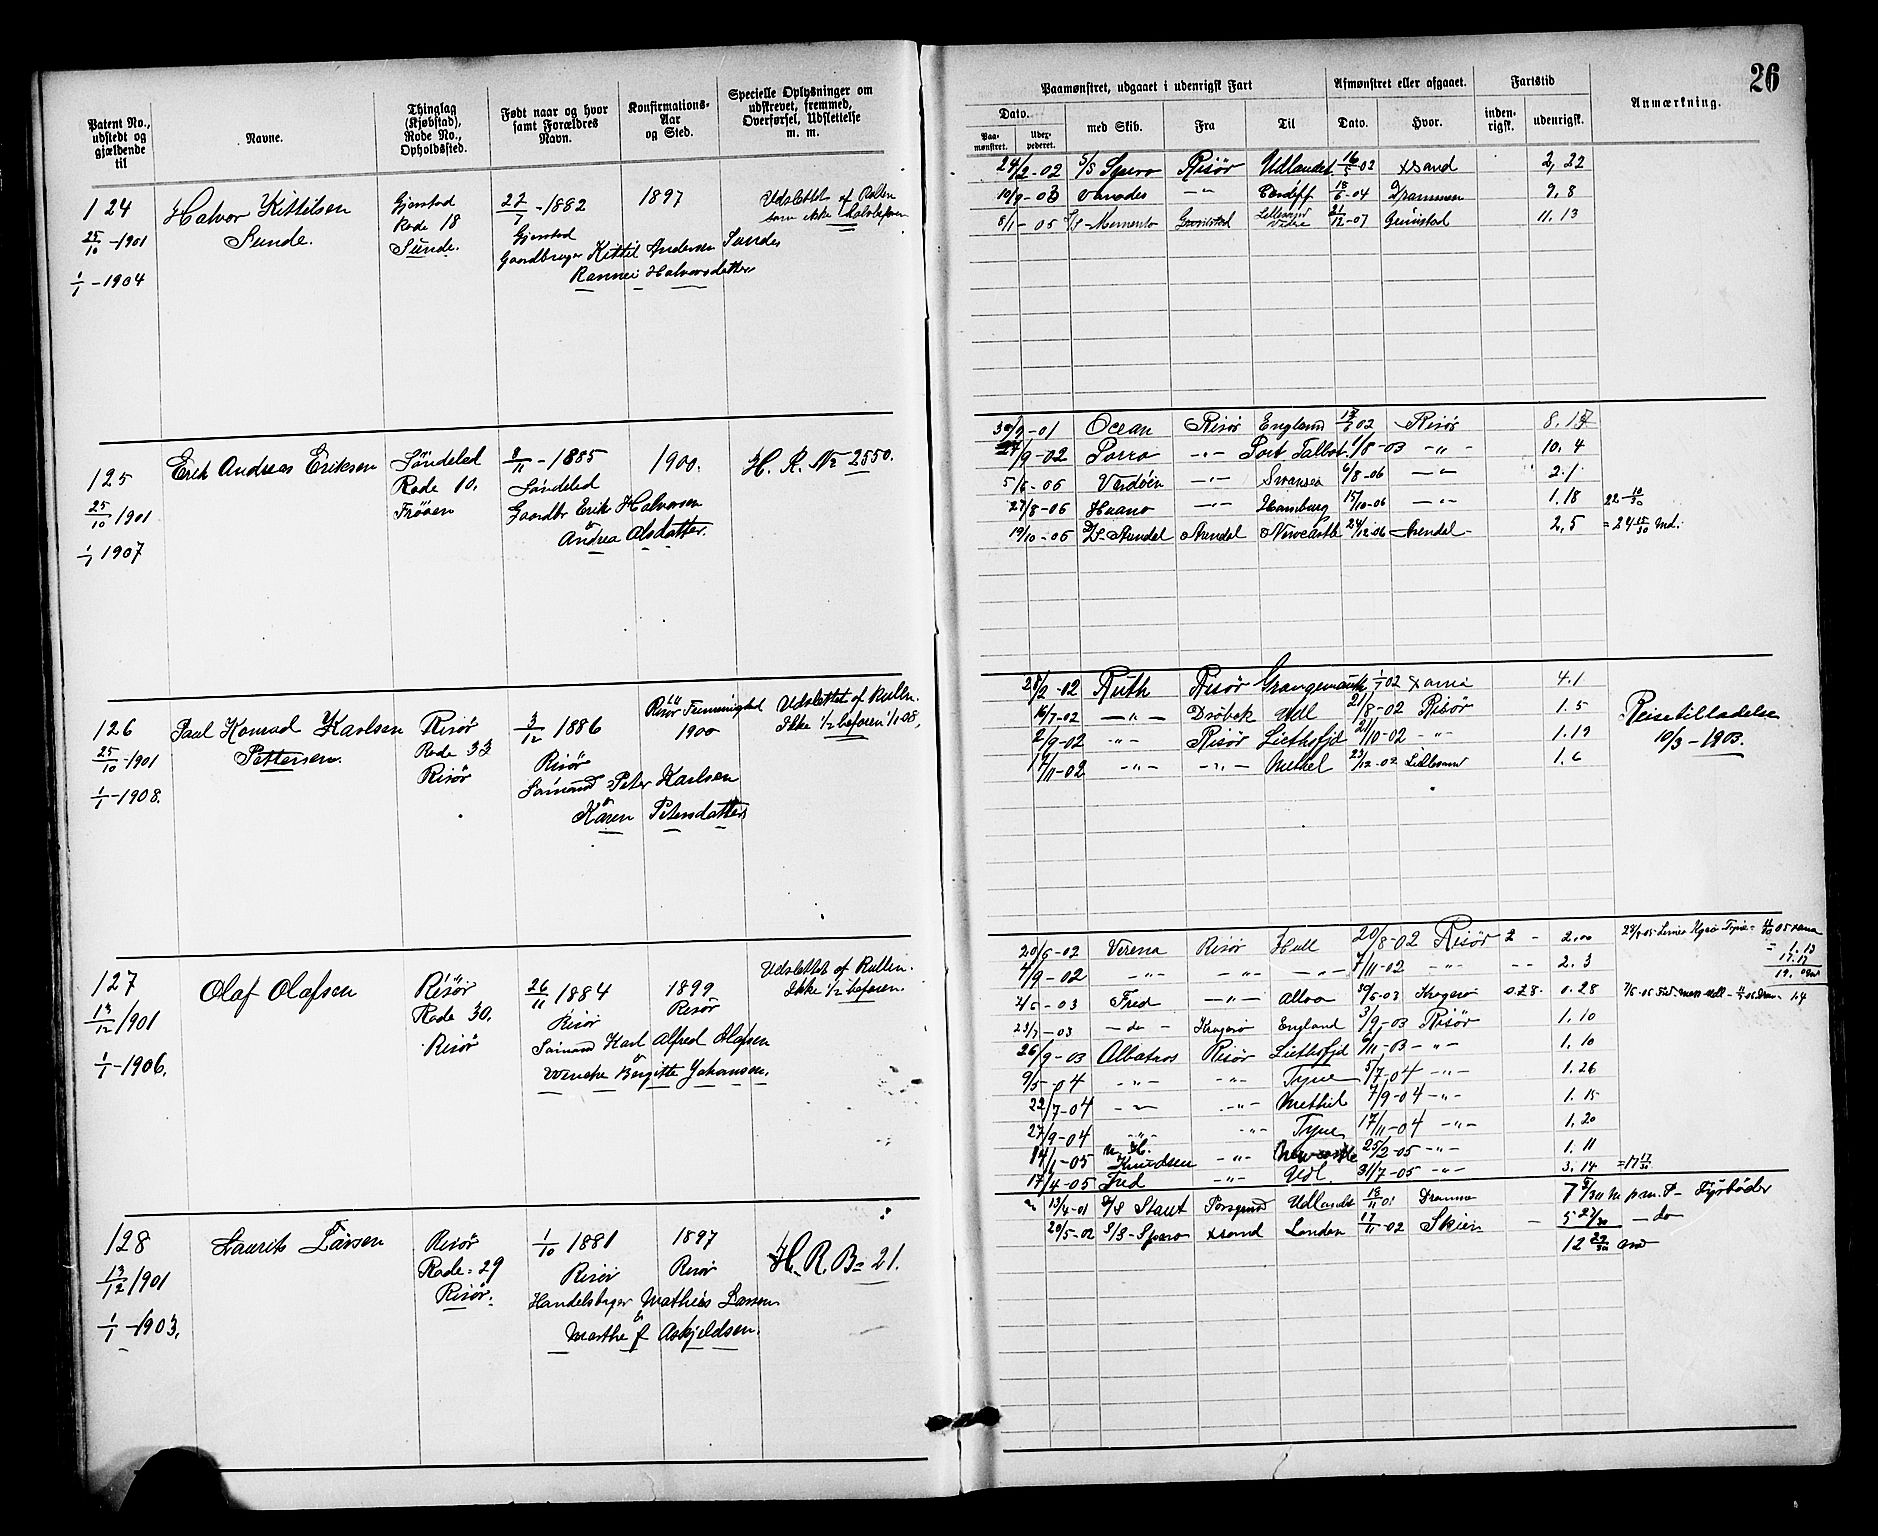 26
Patent No., udstedt og gjældende til
Navne.
Thinglag (Kjøbstad), Rode No., Opholdssted.
Født naar og hvor samt Forældres Navn.
Konfirmations-Aar og Sted.
Specielle Oplysninger om udskrevet, fremmed, Overførsel, Udslettelse m. m.
Paamønstret, udgaaet i udenrigsk Fart
Dato.
Paamønstret.
med Skib.
Fra
Til
Afmønstret eller afgaaet.
Dato.
Hvor.
Fartstid
indenrigsk.
udenrigsk.
Anmærkning.
124
25/10 - 1901
1/1 - 1904
Halvor Kittilsen
Sunde.
Gjerstad
Rode 18
Sunde.
27/7 - 1882
Gjerstad
Gaardbruger Kittil Andersen Sunde
Rannei Halvorsdatter
1897
Udslettet af Rullen
som ikke halvbefaren
24/2-02 S/S Spero Risør Udlandet 16/5-02 Xsand 2, 22
10/9-03 Vanadis -"- Cardiff 18/6-04 Drammen 9. 8
8/1-05 S/S Memento Grimstad 21/12-07 Grimstad 11. 13
125
25/10 1901
1/1 1907
Erik Andreas Eriksen
Søndeled
Rode 10.
Frøven
3/11 - 1885
Søndeled
Gaardbr Erik Halvorsen
& Andrea Olsdatter.
1900.
H. R. No 2550.
30/9-01 Ocean Risør England 02 Risør 8. 17
/9-02 Porro -"- Port Talbot 1/8-03 -"- 10. 4
5/6-06 Vardøen -"- Swansea 6/8-06 -"- 2. 1
27/8-06 Huano -"- Hamburg 15/10-06 -"- 1. 18
19/10-06 D/S Arendal Arendal Newcastle 24/12-06 Arendal 2. 5
22 10/30
= 24 15/30 Md.
126
25/10 - 1901
1/1 - 1908.
Paul Konrad Karlsen
Pettersen.
Risør
Rode 33
Risør
3/12 1886
Risør
Sømand Peter Karlsen
& Karen Petersdatter
Risør Frimenighed
1900
Udslettet af Rullen.
Ikke 1/2 befaren 1/1-08.
28/2-02 Ruth Risør Grangemouth 1/7-02 Xania 4. 1
16/7-02 -"- Drøbak Udl 21/8-02 Risør 1. 5
2/9-02 -"- Risør Liethsfjd 21/10-02 -"- 1. 19
17/11-02 -"- -"- Methel 23/12-02 Lillesand 1. 6
Reisetilladelse
10/3 - 1903.
127
13/12 1901
1/1 - 1906.
Olaf Olafsen
Risør
Rode 30.
Risør
26/11 1884
Risør
Sømand Karl Alfred Olafsen
& Wencke Birgitte Johansen.
1899
Risør
Udslettet af Rullen.
Ikke 1/2 befaren.
20/6-02 Verena Risør Hull 20/8-02 Risør 2 - 2.00
4/9-02 -"- -"- -"- 7/11-02 -"- -- 2. 3
2/5-03 Fred -"- Alloa 30/6-03 Kragerø 0.28. 0. 28
23/7-03 -do- Kragerø England 3/9-03 Risør 1. 10
26/9-03 Albatros Risør Liethsfjd 6/11-03 -"- 1. 10
9/5-04 -"- -"- Tyne 5/7-04 -"- 1. 26
22/7-04 -"- -"- Methil 7/9-04 -"- 1. 15
27/9-04 -"- -"- Tyne 17/11-04 -"- 1. 20
14/1-05 Knudsen -"- Newcastle 25/2-05 -"- 1. 11
17/4-05 Fred -"- Udl. 31/7-05 -"- 3. 14
= 17 17/30
128
13/12 1901
1/1 - 1903.
Laurits Larsen
Risør
Rode = 29
Risør.
1/10 1881
Risør
Handelsborger Mathias Larsen
& Marthe f Askjeldsen.
1897
Risør
H. R. B = 21.
13/4-01 D/S Staut Porsgrund Udlandet 18/11-01 Dramm
20/5-02 S/S Spero Xsand London 17/11-02 Skien - 5 27/30 -do
12 29/30 Md